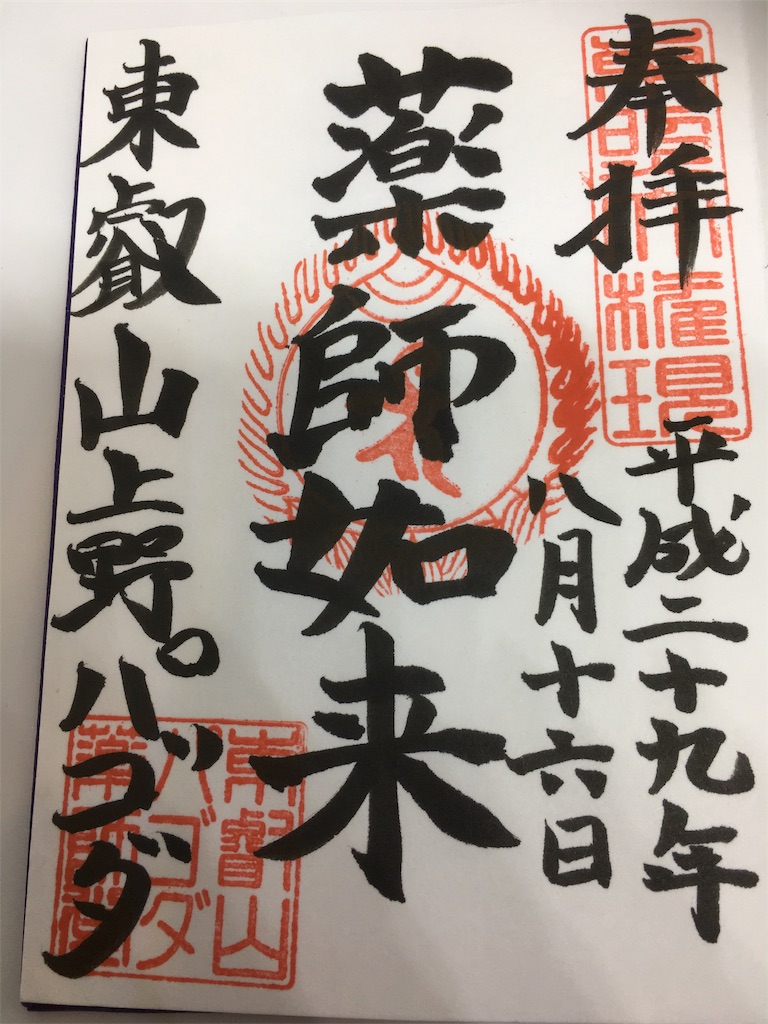 奉拝
権現
平成二十九年
八月十六日
薬師如来
東叡山上野パゴダ
東叡山
パゴダ
薬師堂